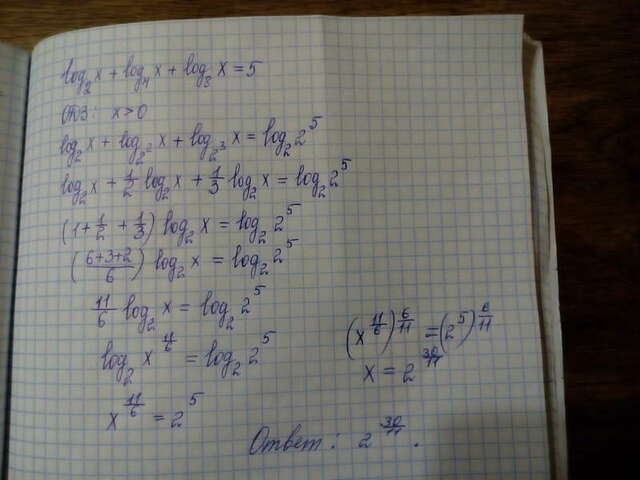 log₂x + log₄x + log₈x = 5
ОДЗ: x > 0
log₂x + log_{2²}x + log_{2³}x = log₂2⁵
log₂x + 1/2 log₂x + 1/3 log₂x = log₂2⁵
(1 + 1/2 + 1/3) log₂x = log₂2⁵
((6+3+2)/6) log₂x = log₂2⁵
11/6 log₂x = log₂2⁵
log₂x^{11/6} = log₂2⁵
x^{11/6} = 2⁵
(x^{11/6})^{6/11} = (2⁵)^{6/11}
x = 2^{30/11}
Ответ: 2^{30/11}.